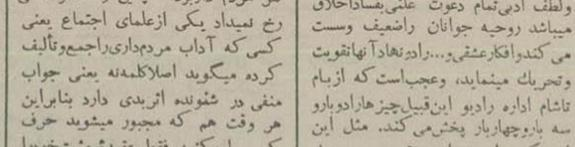 ولطف ادبی تمام دعوت علنی بفساداخلاق
میباشد روحیه جوانان راضعیف وسست
می کندوافکارعشقی و...رادرنهادآنهاتقویت
وتحریك مینماید، وعجب است که ازبام
تاشام اداره رادیو این قبیل چیزهارادوبارو
سه باروچهاربار پخش می کند. مثل این
رخ نمیداد یکی ازعلمای اجتماع یعنی
کسی که آداب مردم داری راجمع وتألیف
کرده میگوید اصلاکلمه نه یعنی جواب
منفی در شنونده اثربدی دارد بنابراین
هر وقت هم که مجبور میشوید حرف